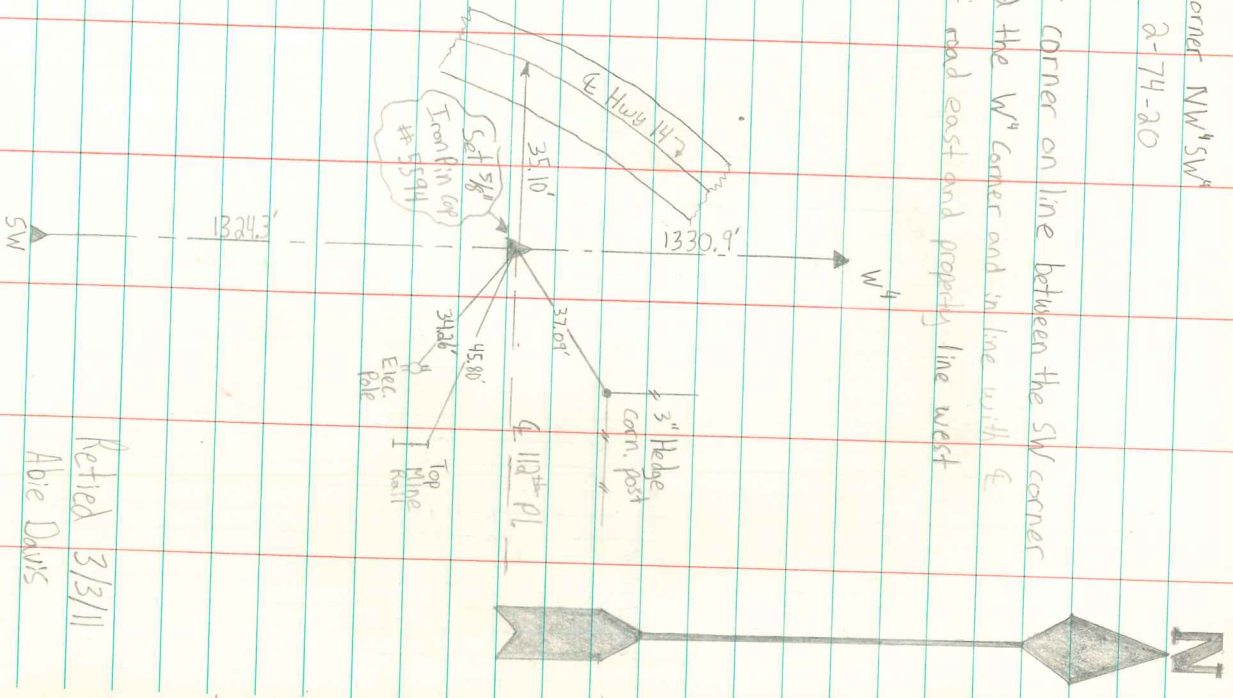 orner NW⁴SW⁴
2-74-20
corner on line between the SW corner
d the W⁴ Corner and in line with ℄
road east and property line west
N
W⁴
1330.9'
℄ Hwy 147
35.10'
Set 5/8"
Iron Pin Cap
# 5594
37.09'
3" Hedge
corn. post
℄ 112th Pl.
34.26'
45.80'
Elec.
Pole
Top
Mine
Rail
1324.3'
SW
Retied 3/3/11
Abie Davis